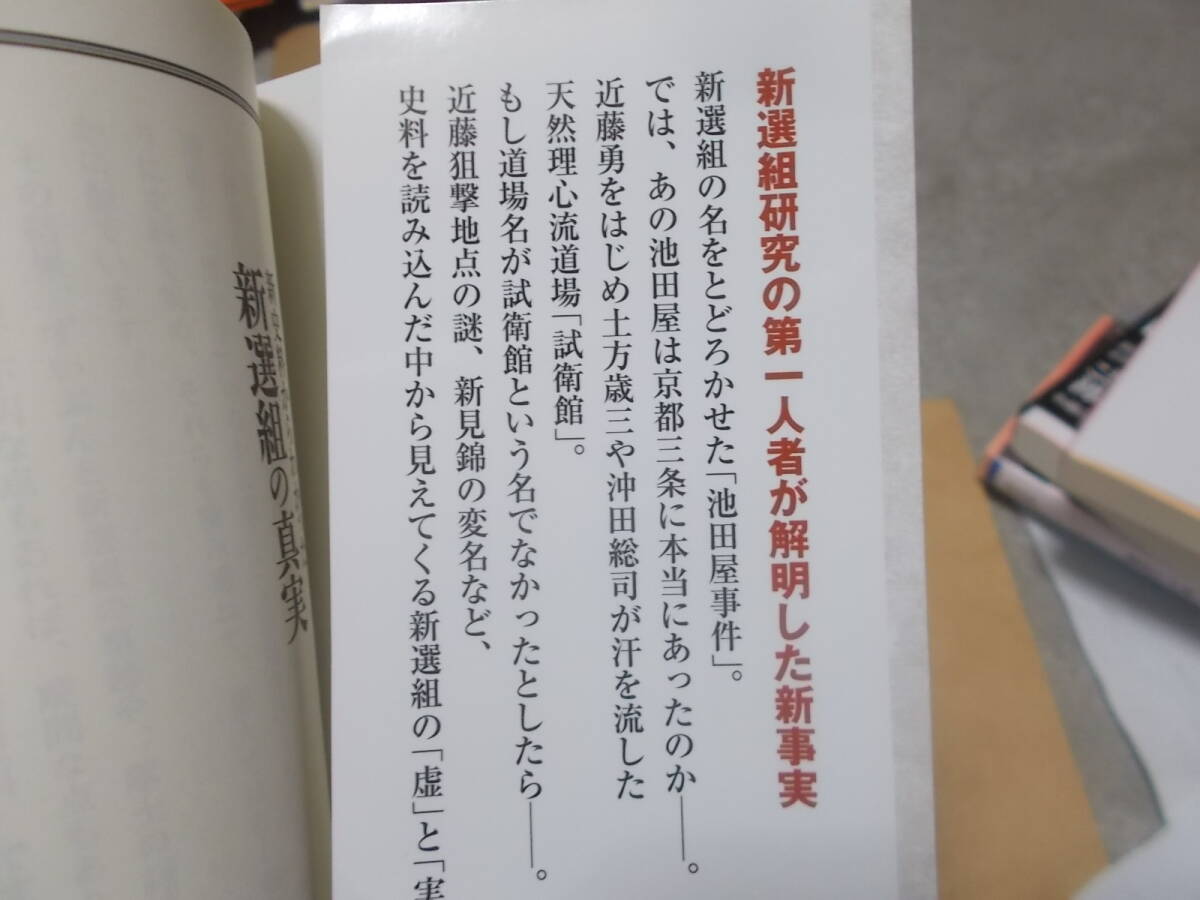 新選組研究の第一人者が解明した新事実
新選組の名をとどろかせた「池田屋事件」。
では、あの池田屋は京都三条に本当にあったのか――。
近藤勇をはじめ土方歳三や沖田総司が汗を流した
天然理心流道場「試衛館」。
もし道場名が試衛館という名でなかったとしたら――。
近藤狙撃地点の謎、新見錦の変名など、
史料を読み込んだ中から見えてくる新選組の「虚」と「実
新選組の真実